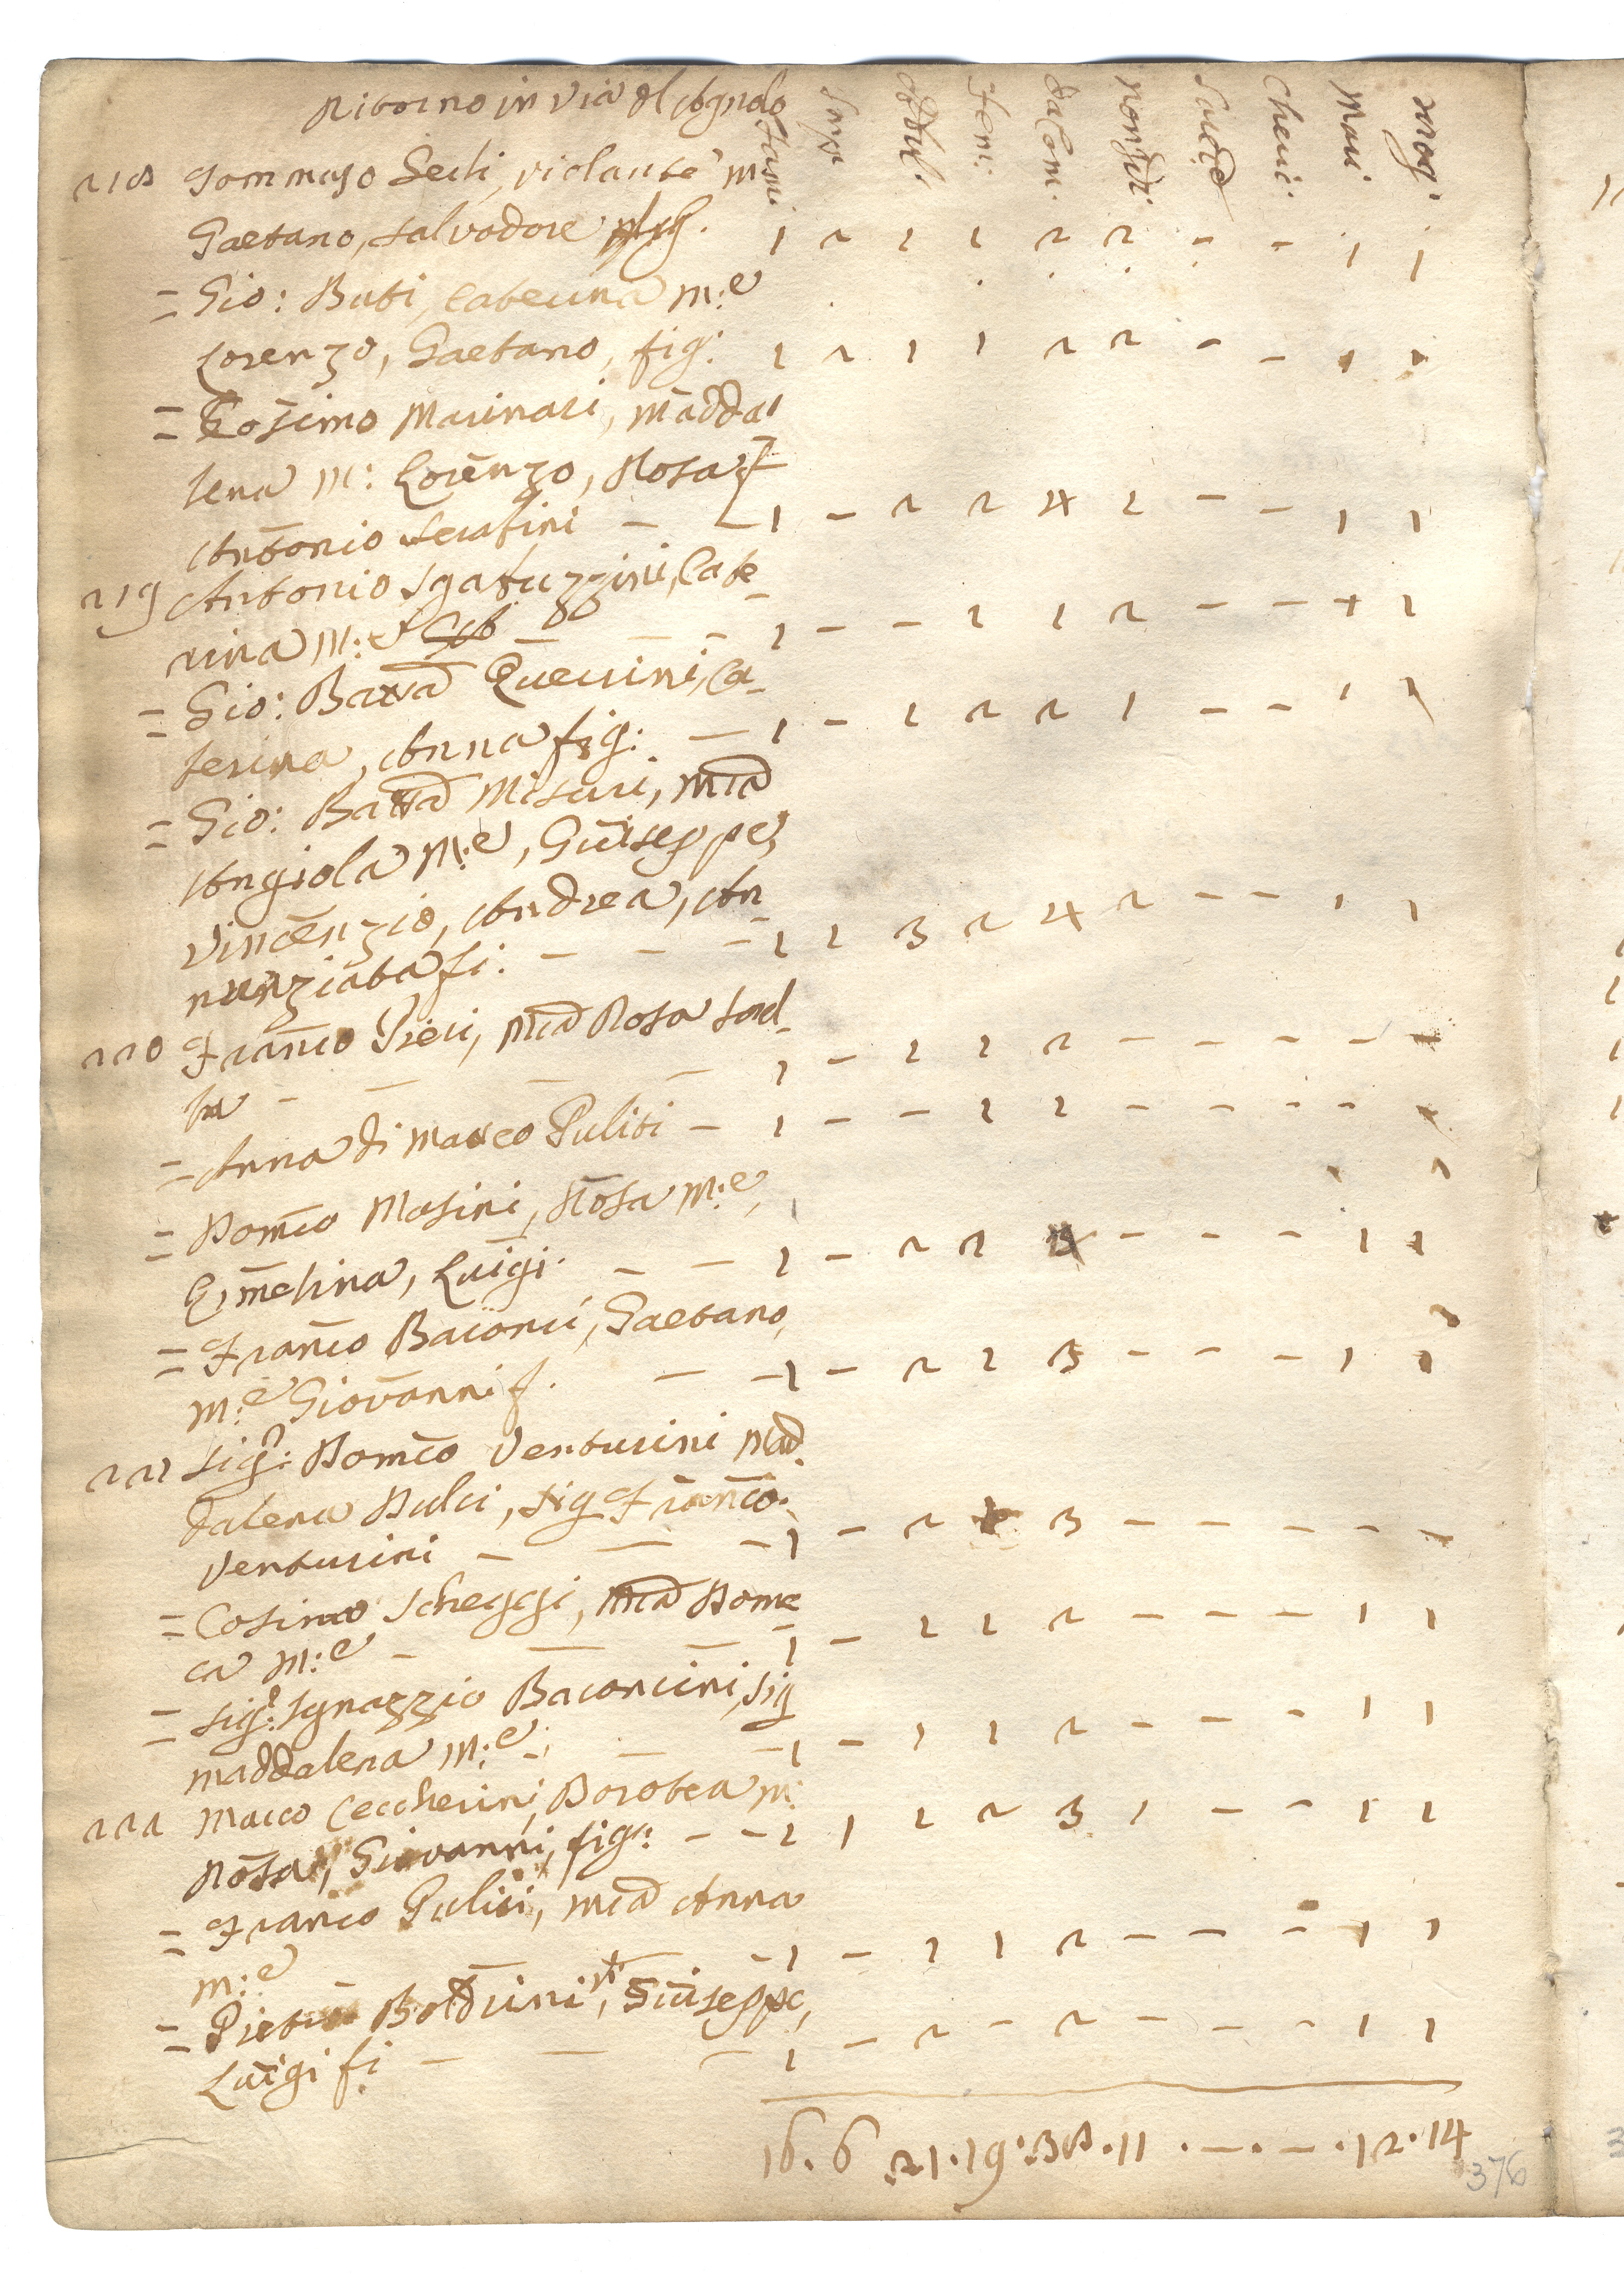 Ritorno in via del
fami masc obdul. fem: dacom. non di sacerd cheric. mari mog.
218 Tommaso Serli, violante m
Gaetano, Salvadore 1 2 1 1 2 2 - - 1 1
= Gio: Buti, Caterina m:e
Lorenzo, Gaetano, fig: 1 2 1 1 2 2 - - 1 1
= Cosimo Marinari, Madda
lena m: Lorenzo, Rosa f
Antonio Serafini - 1 - 2 2 4 2 - - 1 1
219 Antonio Sgatuzzini, Cate
rina m:e 1 - - 1 1 2 - - 1 1
= Gio: Batta Querini, Ca
terina, Anna fig: - 1 - 1 2 2 1 - - 1 1
= Gio: Batta Misuri, Mia
Angiola m:e, Giuseppe,
Vincenzio, Andrea, An
nunziata fi. - - - 1 1 3 2 4 2 - - 1 1
220 Franco Pieri, Mia Rosa
1 - 1 1 2 - - - - -
= Anna di Matteo Puliti - 1 - - 1 1 - - - - -
= Domco Masini, Rosa m:e,
Ermelina, Luigi - - 1 - 2 2 4 - - - 1 1
= Franco Baconci, Gaetano,
m:e Giovanni f. - - 1 - 2 1 3 - - - 1 1
221 Sig: Domco Venturini Mad
dalena Pulci, Sig Franco
Venturini - - - 1 - 2 1 3 - - - - -
= Cosimo Scheggi, Mia Dome
ca m:e - 1 - 1 1 2 - - - 1 1
= Sig: Ignazzio Baconcini, Sig
Maddalena m:e - 1 - 1 1 2 - - - 1 1
222 Marco Ceccherini, Dorotea m:
Rosa, Giovanni, fig: - - 1 1 1 2 3 1 - - 1 1
= Franco Puliti, Mia Anna
m:e - 1 - 1 1 2 - - - 1 1
= Pietro Boldrini, Giuseppe,
Luigi fi - - - 1 - 2 - 2 - - - 1 1
16. 6 21. 19. 38. 11 . - . - . 12. 14
376